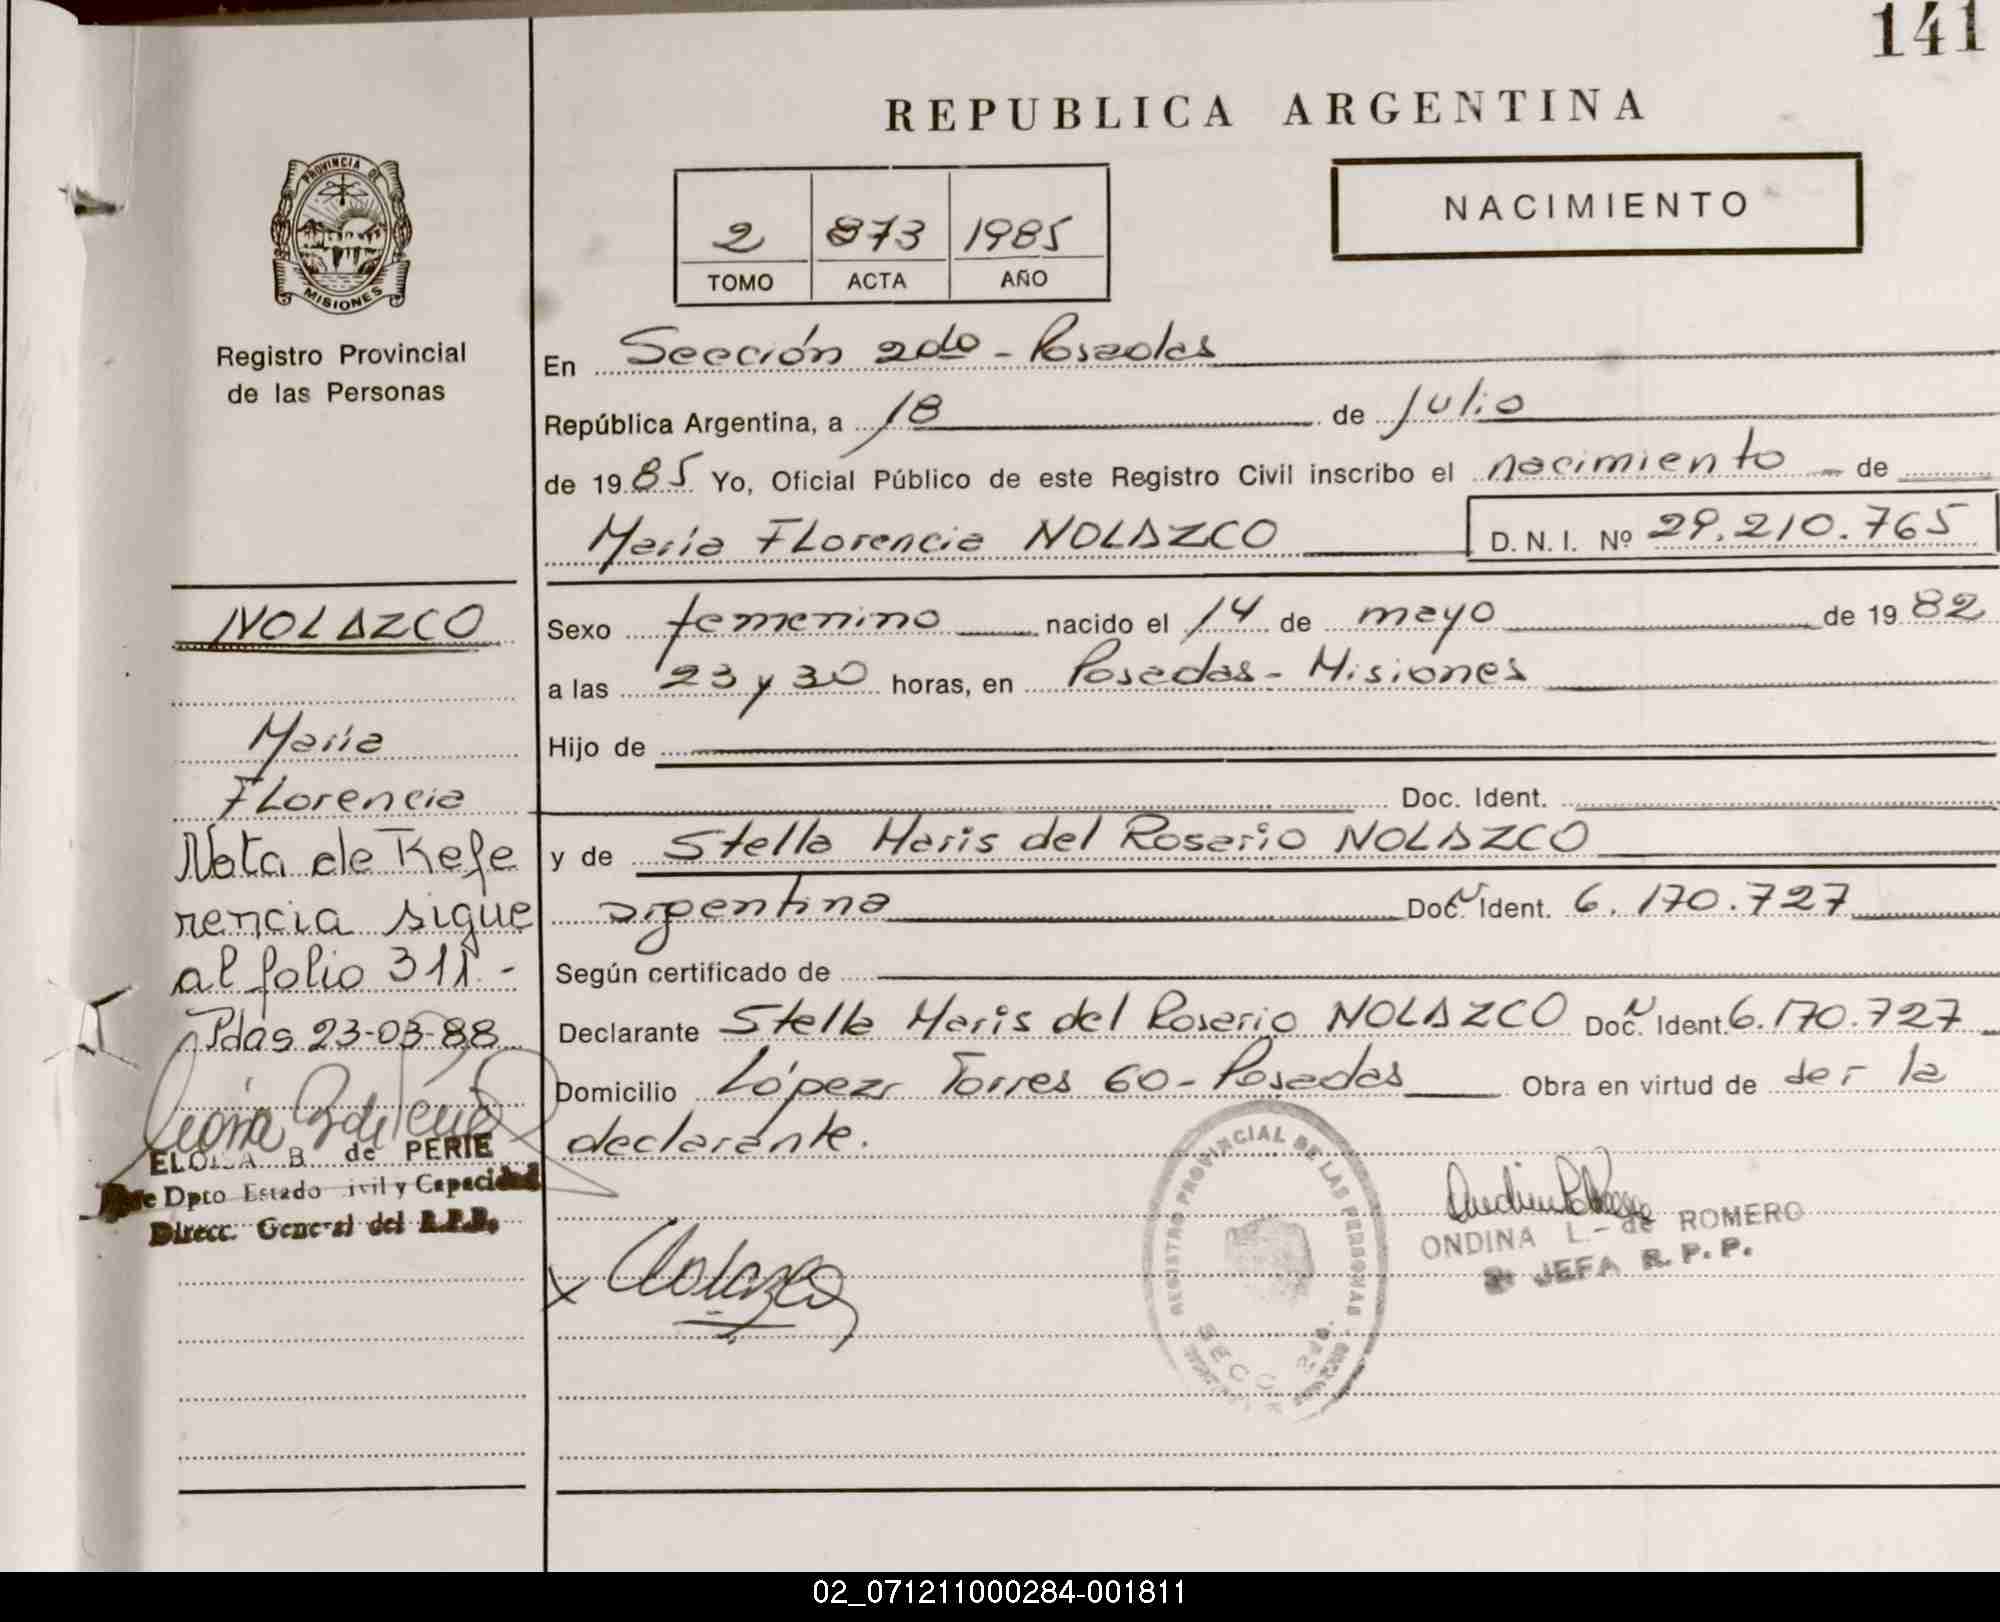 141
REPUBLICA ARGENTINA
PROVINCIA DE
MISIONES
Registro Provincial
de las Personas
2 873 1985
TOMO ACTA AÑO
NACIMIENTO
En Sección 2do - Posadas
República Argentina, a 18 de Julio
de 1985 Yo, Oficial Público de este Registro Civil inscribo el nacimiento - de
María Florencia NOLAZCO D. N. I. Nº 29.210.765
NOLAZCO
María
Florencia
Nota de Refe
rencia sigue
al folio 311.-
Pdas 23-03-88
ELOISA B de PERIE
Dpto Estado ivil y Capacidad
Direcc. General del R.P.P.
Sexo femenino nacido el 14 de mayo de 1982
a las 23 y 30 horas, en Posadas - Misiones
Hijo de
Doc. Ident.
y de Stella Maris del Rosario NOLAZCO
argentina Doc. Ident. 6.170.727
Según certificado de
Declarante Stella Maris del Rosario NOLAZCO Doc. Ident. 6.170.727
Domicilio López Torres 60 - Posadas Obra en virtud de ser la
declarante.
REGISTRO PROVINCIAL DE LAS PERSONAS
SECC
Nolazco
ONDINA L. - de ROMERO
JEFA R. P. P.
02_071211000284-001811